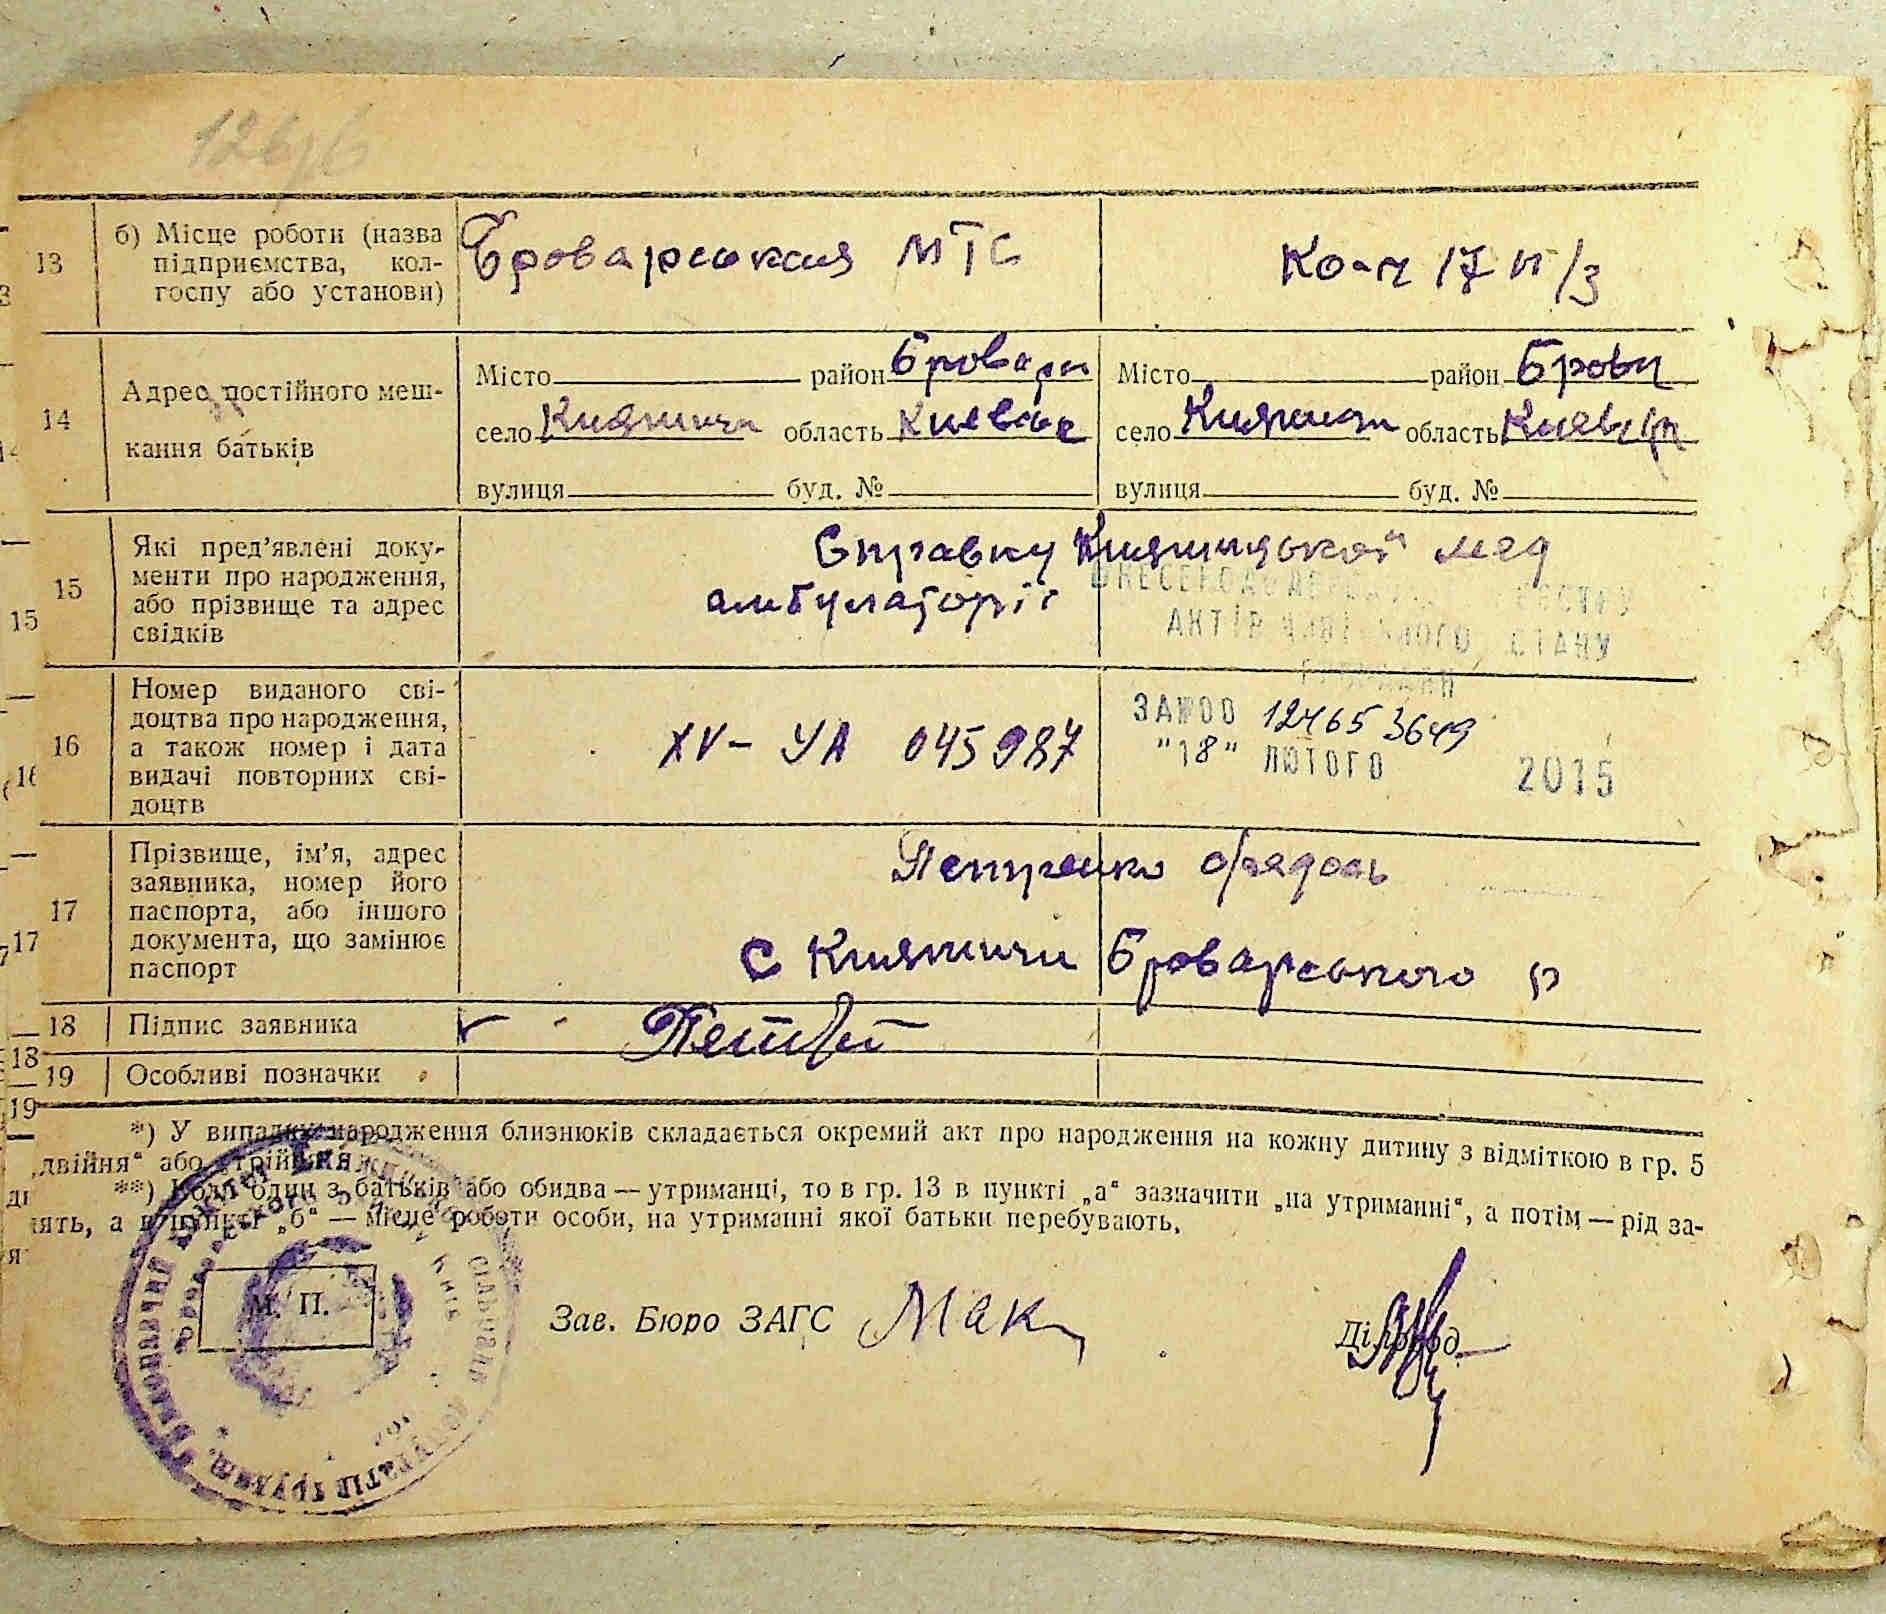 126
13 б) Місце роботи (назва
підприємства, кол-
госпу або установи)
Броварская МТС
17 п/з
14 Адрес постійного меш-
кання батьків
Місто район Бровари
село Княжичи область Киевск
вулиця буд. №
Місто район Бров
село Княжичи область Киевск
вулиця буд. №
15 Які пред’явлені доку-
менти про народження,
або прізвище та адрес
свідків
Справку Княжицькой мед
амбулаторіі
АКТІВ ЦИВІЛЬНОГО СТАНУ
ГРОМАДЯН
16 Номер виданого сві-
доцтва про народження,
а також номер і дата
видачі повторних сві-
доцтв
XV- УА 045987
ЗА№00 124653649
"18" ЛЮТОГО 2015
17 Прізвище, ім’я, адрес
заявника, номер його
паспорта, або іншого
документа, що замінює
паспорт
Петренко
с Княжичи Броварського р
18 Підпис заявника
19 Особливі позначки
*) У випадку народження близнюків складається окремий акт про народження на кожну дитину з відміткою в гр. 5
„двійня“ або „трійня“.
**) Коли один з батьків або обидва — утриманці, то в гр. 13 в пункті „а“ зазначити „на утриманні“, а потім — рід за-
нять, а в пункті „б“ — місце роботи особи, на утриманні якої батьки перебувають.
М. П.
Зав. Бюро ЗАГС
Діловод